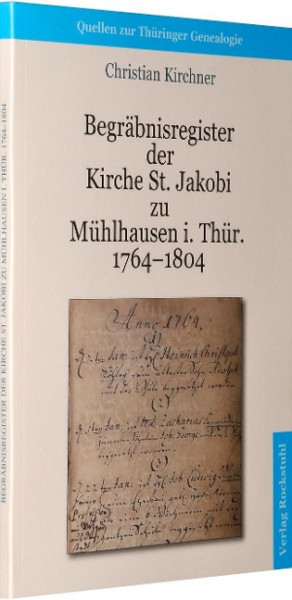 Quellen zur Thüringer Genealogie
Christian Kirchner
Begräbnisregister
der
Kirche St. Jakobi
zu
Mühlhausen i. Thür.
1764–1804
Anno 1764.
(1)
Heinrich Christoph
(2)
Zacharias
(3)
Ludwig
Verlag Rockstuhl
BEGRÄBNISREGISTER DER KIRCHE ST. JAKOBI ZU MÜHLHAUSEN I. THÜR. 1764–1804